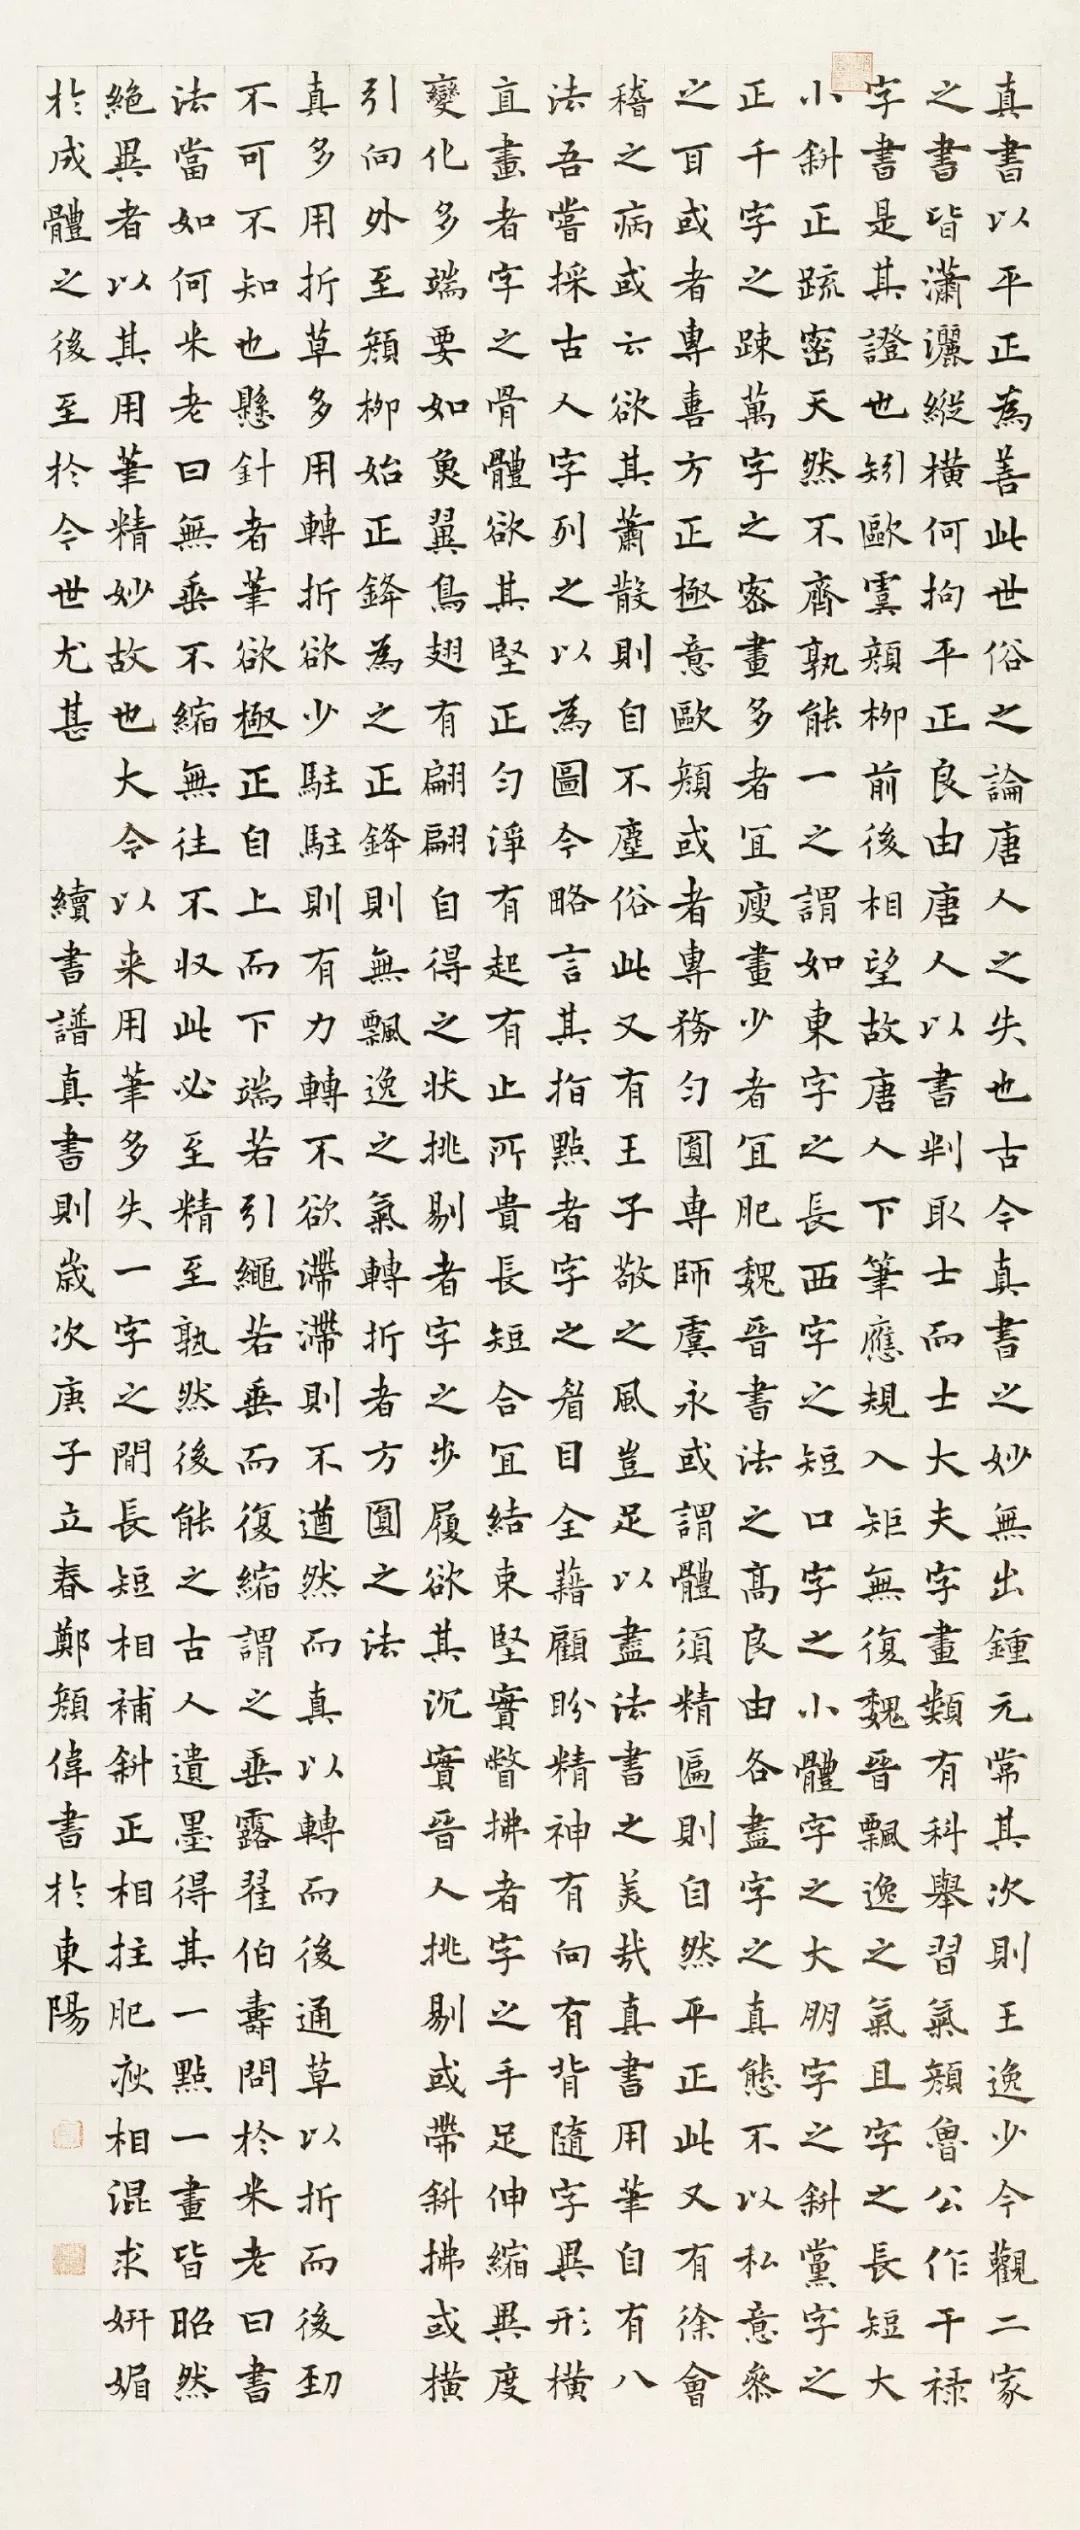 真書以平正為善此世俗之論唐人之失也古今真書之妙無出鍾元常其次則王逸少今觀二家
之書皆瀟灑縱橫何拘平正良由唐人以書判取士而士大夫字畫類有科舉習氣顏魯公作干祿
字書是其證也矧歐虞顏柳前後相望故唐人下筆應規入矩無復魏晉飄逸之氣且字之長短大
小斜正疏密天然不齊孰能一之謂如東字之長西字之短口字之小體字之大朋字之斜黨字之
正千字之疎萬字之密畫多者宜瘦畫少者宜肥魏晉書法之高良由各盡字之真態不以私意參
之耳或者專喜方正極意歐顏或者專務勻圓專師虞永或謂體須精匾則自然平正此又有徐會
稽之病或云欲其蕭散則自不塵俗此又有王子敬之風豈足以盡法書之美哉真書用筆自有八
法吾嘗採古人字列之以為圖今略言其指點者字之眉目全藉顧盼精神有向有背隨字異形橫
直畫者字之骨體欲其堅正勻淨有起有止所貴長短合宜結束堅實瞥拂者字之手足伸縮異度
變化多端要如魚翼鳥翅有翩翩自得之狀挑剔者字之步履欲其沉實晉人挑剔或帶斜拂或橫
引向外至顏柳始正鋒為之正鋒則無飄逸之氣轉折者方圓之法
真多用折草多用轉折欲少駐駐則有力轉不欲滯滯則不遒然而真以轉而後通草以折而後勁
不可不知也懸針者筆欲極正自上而下端若引繩若垂而復縮謂之垂露翟伯壽問於米老曰書
法當如何米老曰無垂不縮無往不收此必至精至熟然後能之古人遺墨得其一點一畫皆昭然
絕異者以其用筆精妙故也大令以来用筆多失一字之間長短相補斜正相拄肥瘦相混求妍媚
於成體之後至於今世尤甚 續書譜真書則歲次庚子立春鄭頰偉書於東陽